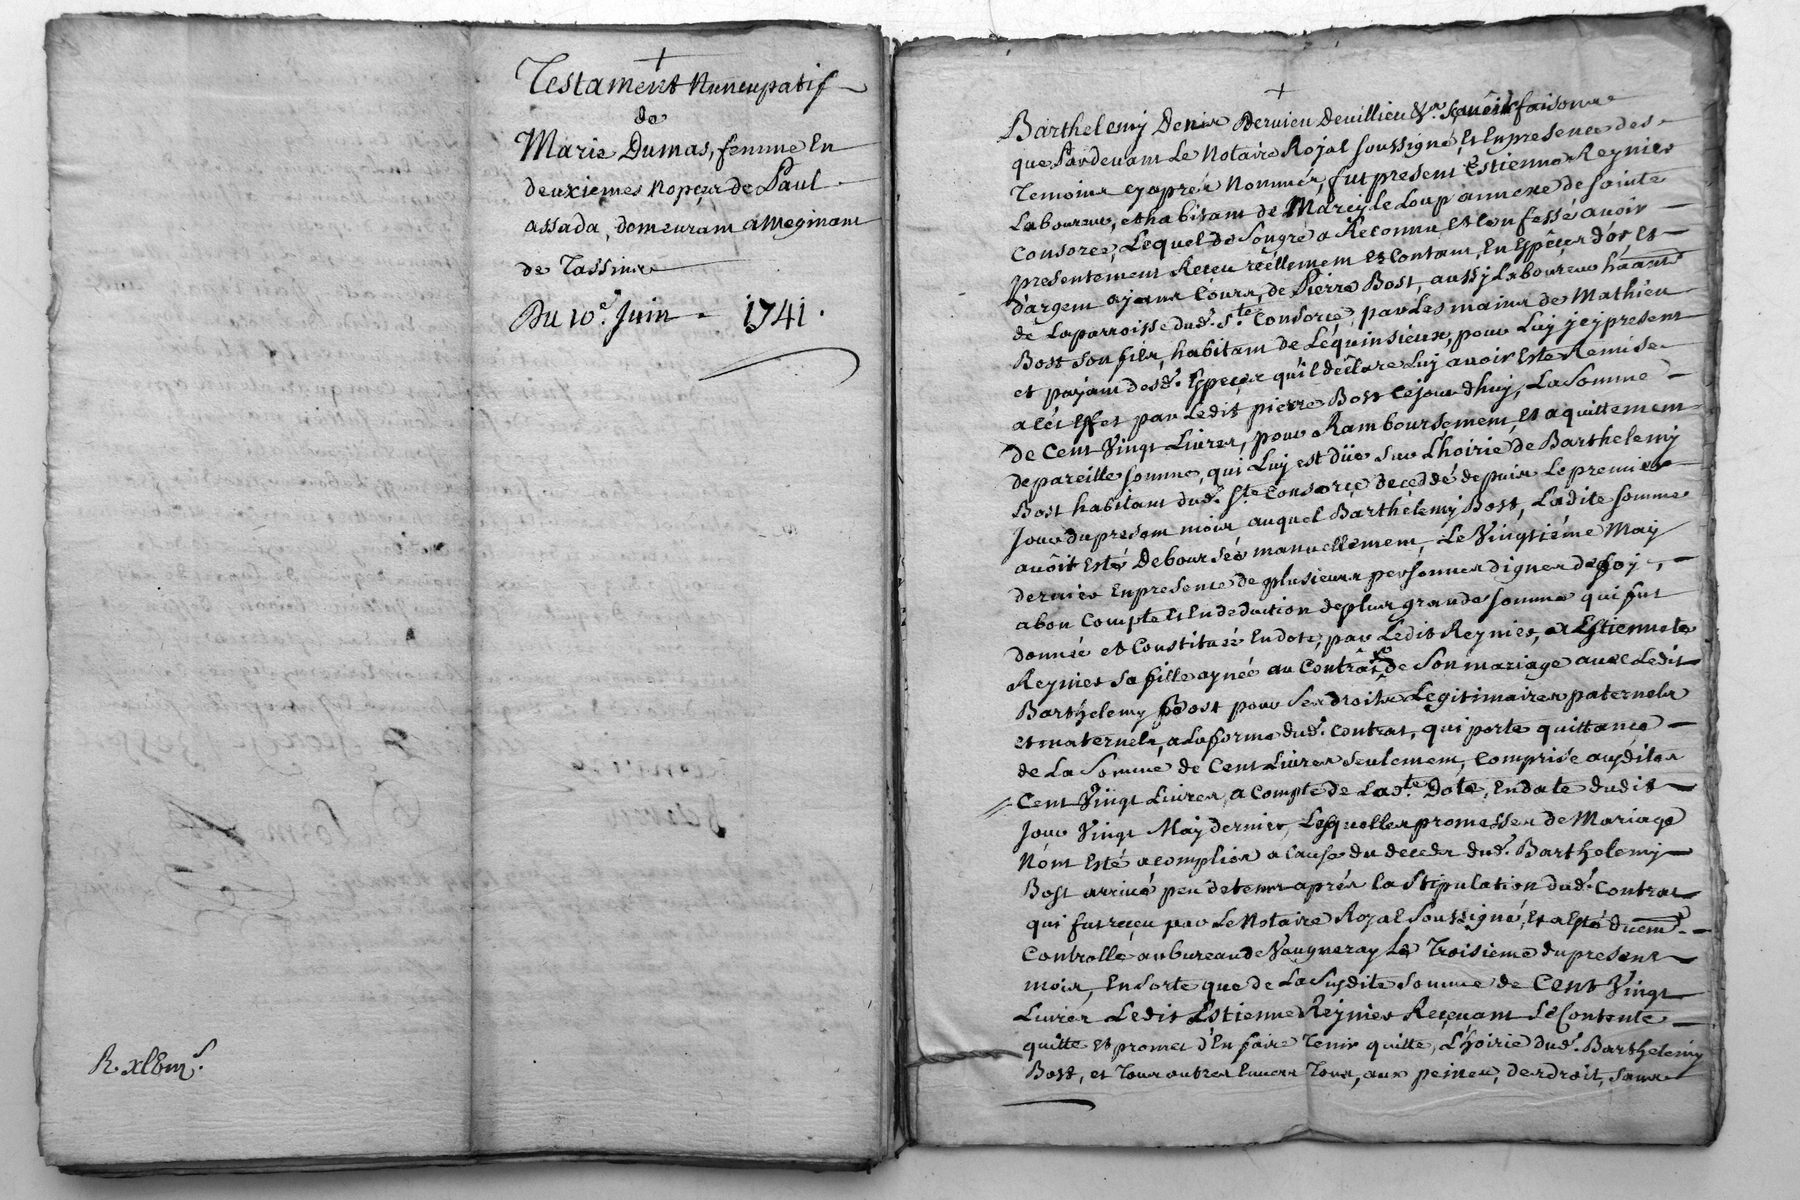 Testament Nuncupatif
de
Marie Dumas, femme En
deuxiemes nopces de Paul
assada, demeurant a Meginant
de Tassins
Du 10e. Juin 1741.
R. xl
Barthelemy Denis Dervieu Devillieu Sçavoir faisons
que Pardevant Le Notaire Royal soussigné, Et En presence des
Temoins cy aprés Nommés, fut present Estienne Reynier
Laboureur, et habitant de Marcy le Loup annexe de Sainte
Consorce, Lequel de Son gré a Reconnu et Confessé avoir
presentement Receu réellement et Contant, En Espéces d'or, Et
d'argent ayans Cours, de Pierre Bost, aussy Laboureur habitant
de La parroisse dud. Ste. Consorce, par Les mains de Mathieu
Bost son fils, habitant de Lequinsieux, pour Luy icy present
et payant desd. Especes qu'il déclare Luy avoir Esté Remise
a cét Effet par Ledit pierre Bost Cejourdhuy, La Somme
de Cent Vingt Livres, pour Ramboursement, Et aquittement
de pareille somme, qui Luy est düe sur L'hoirie de Barthelemy
Bost habitant dud. Ste. Consorce decedé depuis Le premier
Jour du present mois auquel Barthélemy Bost, Ladite somme
avoit Esté Deboursée manuellement, Le Vingtiéme May
dernier En presence de plusieurs personnes dignes de foy,
a bon Compte Et En deduction de plus grande somme qui fut
donnée et Constituée En dote, par Ledit Reynier, a Estiennete
Reynier sa fille aynée au Contrat de Son mariage avec Ledit
Barthelemy Bost pour Ses droits Legitimaires paternels
et maternels, a La forme dud. Contrat, qui porte quittance
de La Somme de Cent Livres seulement, Comprise ausdites
Cent Vingt Livres, a Compte de Lad.te Dote, En date dudit
Jour Vingt May dernier, Lesquelles promesses de Mariage
N'ont Esté acomplies a Cause du decés dud. Barthelemy
Bost arrivé peu de tems aprés la Stipulation dud. Contrat
qui fut reçeu par Le Notaire Royal Soussigné, Et a Esté duemt.
Controllé au bureau de Vaugneray Le Troisieme du present
mois, En sorte que de La Susdite Somme de Cent Vingt
Livres Ledit Estienne Reynier Reçevant Se Contente
quitte et promet d'En faire Tenir quitte, L'hoirie dud. Barthelemy
Bost, et Tous autres Envers Tous, aux peines, de droit, sans